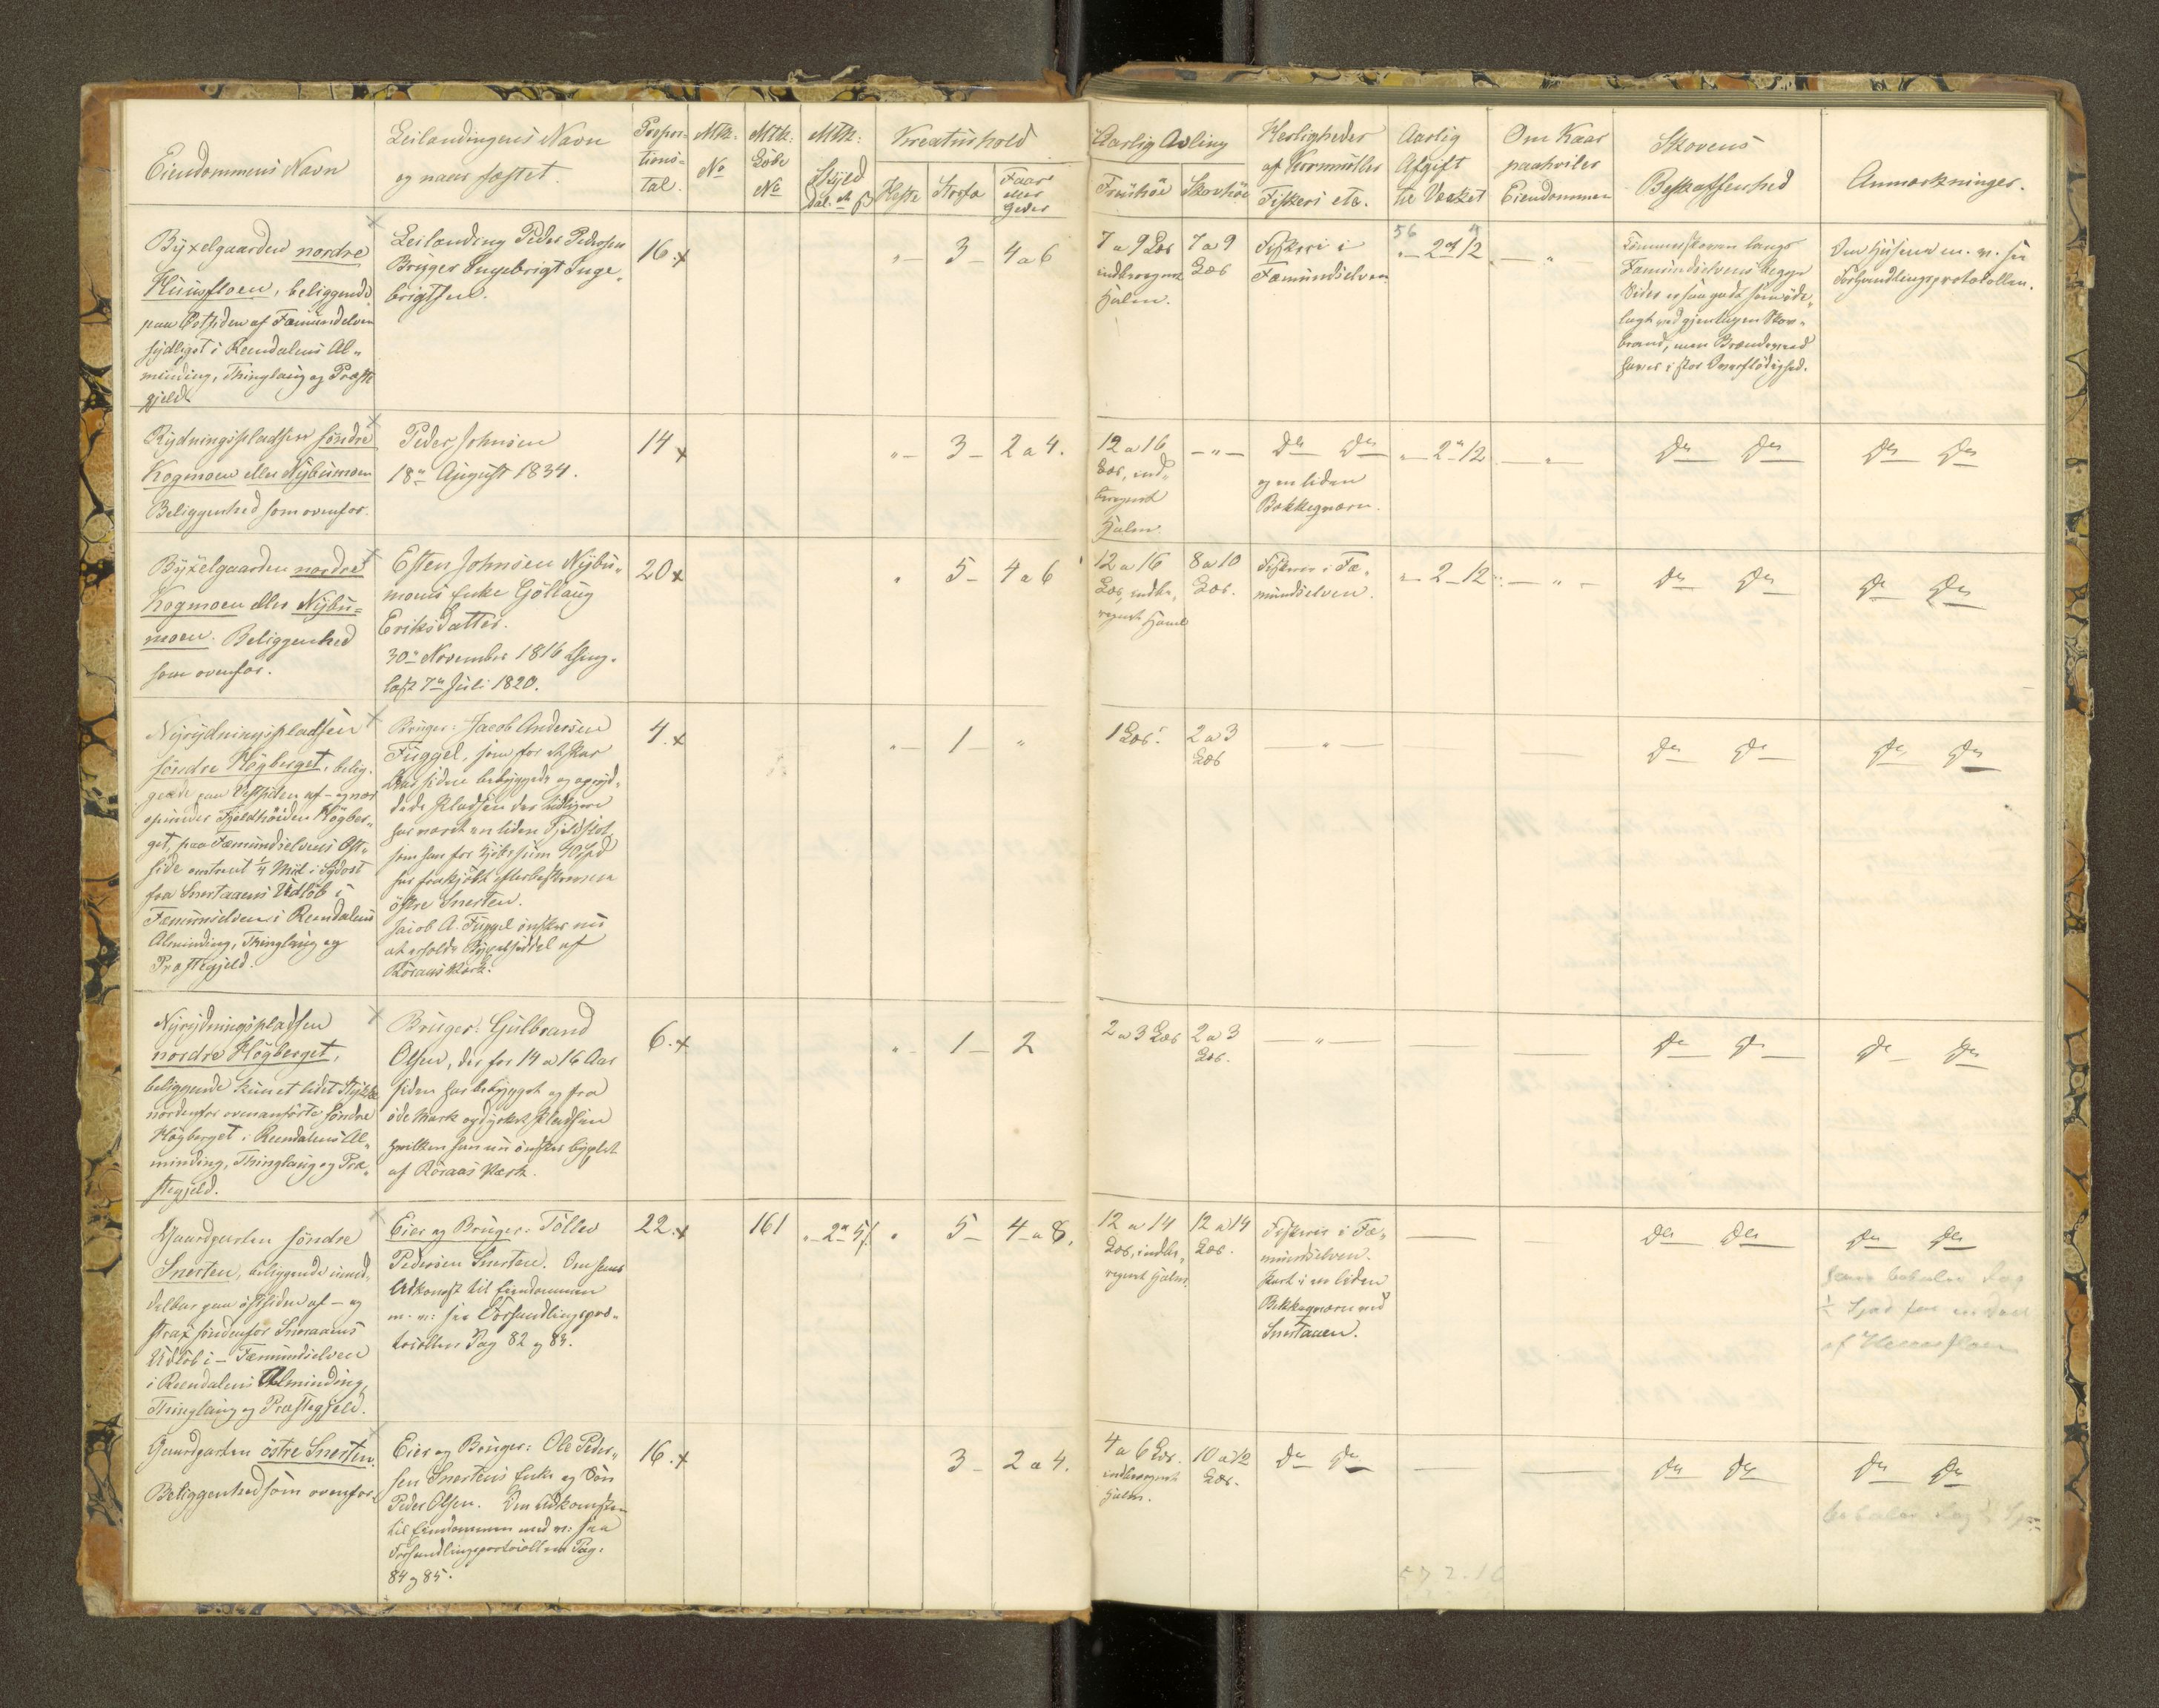 Eiendommens Navn
Leilændingens Navn
og naar fæstet.
Propor-
tions-
tal.
Mtk.
No
Mtk:
Löbe
No
Mtk:
Skÿld
Dal. ß
Kreaturhold
Heste
Storfæ
Faar
eller
Geder
Aarlig Avling
Fröehöe
Skovhöe
Herligheder
af Kornmöller
Fiskeri etc.
Aarlig
Afgift
til Værket
Om Kaar
paahviler
Eiendommen
Skovens
Beskaffenhed
Anmærkninger.
Bÿxelgaarden nordre
Hüüsfloen, beliggende
paa Östsiden af Fæmundelven
sÿdligst i Rendalens Al-
minding, Thinglaug og Præste
gjeld.
Leilænding Peder Pedersen
Brüger Ingebrigt Inge-
brigtsen.
16. x
" — 3 — 4 a 6
7 a 9 Læs
indberegnet
Halm.
7 a 9
Læs
Fiskeri i
Fæmündselven
56
" — 2 " 12
— " —
Furuskoven langs
Fæmündselvens begge
Sider er saagodt som öde-
lagt ved gjentagen Skov-
brand, men Brændeved
haves i stor Overflödighed.
Om Husene m. v. see
Forhandlingsprotokollen.
Rÿdningspladsen söndre
Kogmoen eller Nÿbümoen
Beliggenhed som ovenfor.
Peder Johnsen
18de August 1834.
14 x
" — 3 — 2 a 4.
12 a 16
Læs, ind-
beregnet
Halm
— " —
Do Do
og en liden
Bækkeqværn.
" — 2 " 12
— "
Do Do
Do Do
Bÿxelgaarden nordre
Kogmoen eller Nÿbü-
moen. Beliggenhed
som ovenfor.
Esten Johnsen Nÿbü-
moens Enke Göllaug
Eriksdatter.
30te November 1816 thing-
læst 7de Juli 1820.
20 x
" 5 — 4 a 6
12 a 16
Læs, indbe-
regnet Halm
8 a 10
Læs.
Fiskeri i Fæ-
mündselven.
" — 2 — 12
— " —
Do Do
Do Do
Nÿrÿdningspladsen
söndre Högberget, belig-
gende paa Vestsiden af — og nær
opunder Fjeldhöiden Högber-
get, paa Fæmündselvens Öst-
side omtrent 1/4 Miil i Sydost
fra Snertaaens Udlöb i
Fæmündselven i Rendalens
Alminding, Thinglaug og
Præstegjeld.
Brüger: Jacob Andersen
Függel, som for
Aar siden bebÿggede og oprÿd-
dede Pladsen der tidligere
har været en liden Fjeldslet
som han for Kjöbesüm 40 Spd
har frakjöbt
östre Snerten.
Jacob A. Függel önsker nü
at erholde Bÿxelseddel af
Röraas Værk.
4. x
" — 1 "
1 Læs.
2 a 3
Læs
— " —
—
Do Do
Do Do
Nÿrÿdningspladsen
nordre Högberget,
beliggende kün et lidet Stÿkke
nordenfor ovenanförte söndre
Högberget i Rendalens Al-
minding, Thinglaug og Præ-
stegjeld.
Brüger: Gülbrand
Olsen, der for 14 a 16 Aar
siden har bebÿgget og fra
öde Mark opdÿrket Pladsen
hvilken han nü önsker bÿxlet
af Röraas Værk.
6. x
" — 1 — 2
2 a 3 Læs
2 a 3
Læs.
— " —
—
—
Do Do
Do Do
Gaardparten söndre
Snerten, beliggende umid-
delbar paa östsiden af — og
strax söndenfor Snertaaens
Udlöb i — Fæmündselven
i Rendalens Alminding,
Thinglaug og Præstegjeld.
Eier og Brüger: Tollev
Pedersen Snerten. Om hans
Adkomst til Eiendommen
m. v: see Forhandlingspro-
tocollen Pag 82 og 83.
22. x
161
" — 2 " 5
" 5 — 4 a 8.
12 a 14
Læs, indbe-
regnet Halm
12 a 14
Læs.
Fiskeri i Fæ-
mündselven.
Part i en liden
Bekkeqværn ved
Snertaaen.
—
—
Do Do
Do Do
Han betaler
1/2 Spd for en Deel
af Huusfloen
Gaardparten östre Snerten.
Beliggenhed som ovenfor.
Eier og Brüger: Ole Peder-
sen Snertens Enke og Sön
Peder Olsen. Om Adkomsten
til Eiendommen med v: see
Forhandlingsprotocollen Pag:
84 og 85.
16. x
3 — 2 a 4.
4 a 6 Læs.
indberegnet
Halm.
10 a 12
Læs.
Do Do
—
—
Do Do
Do Do
betaler